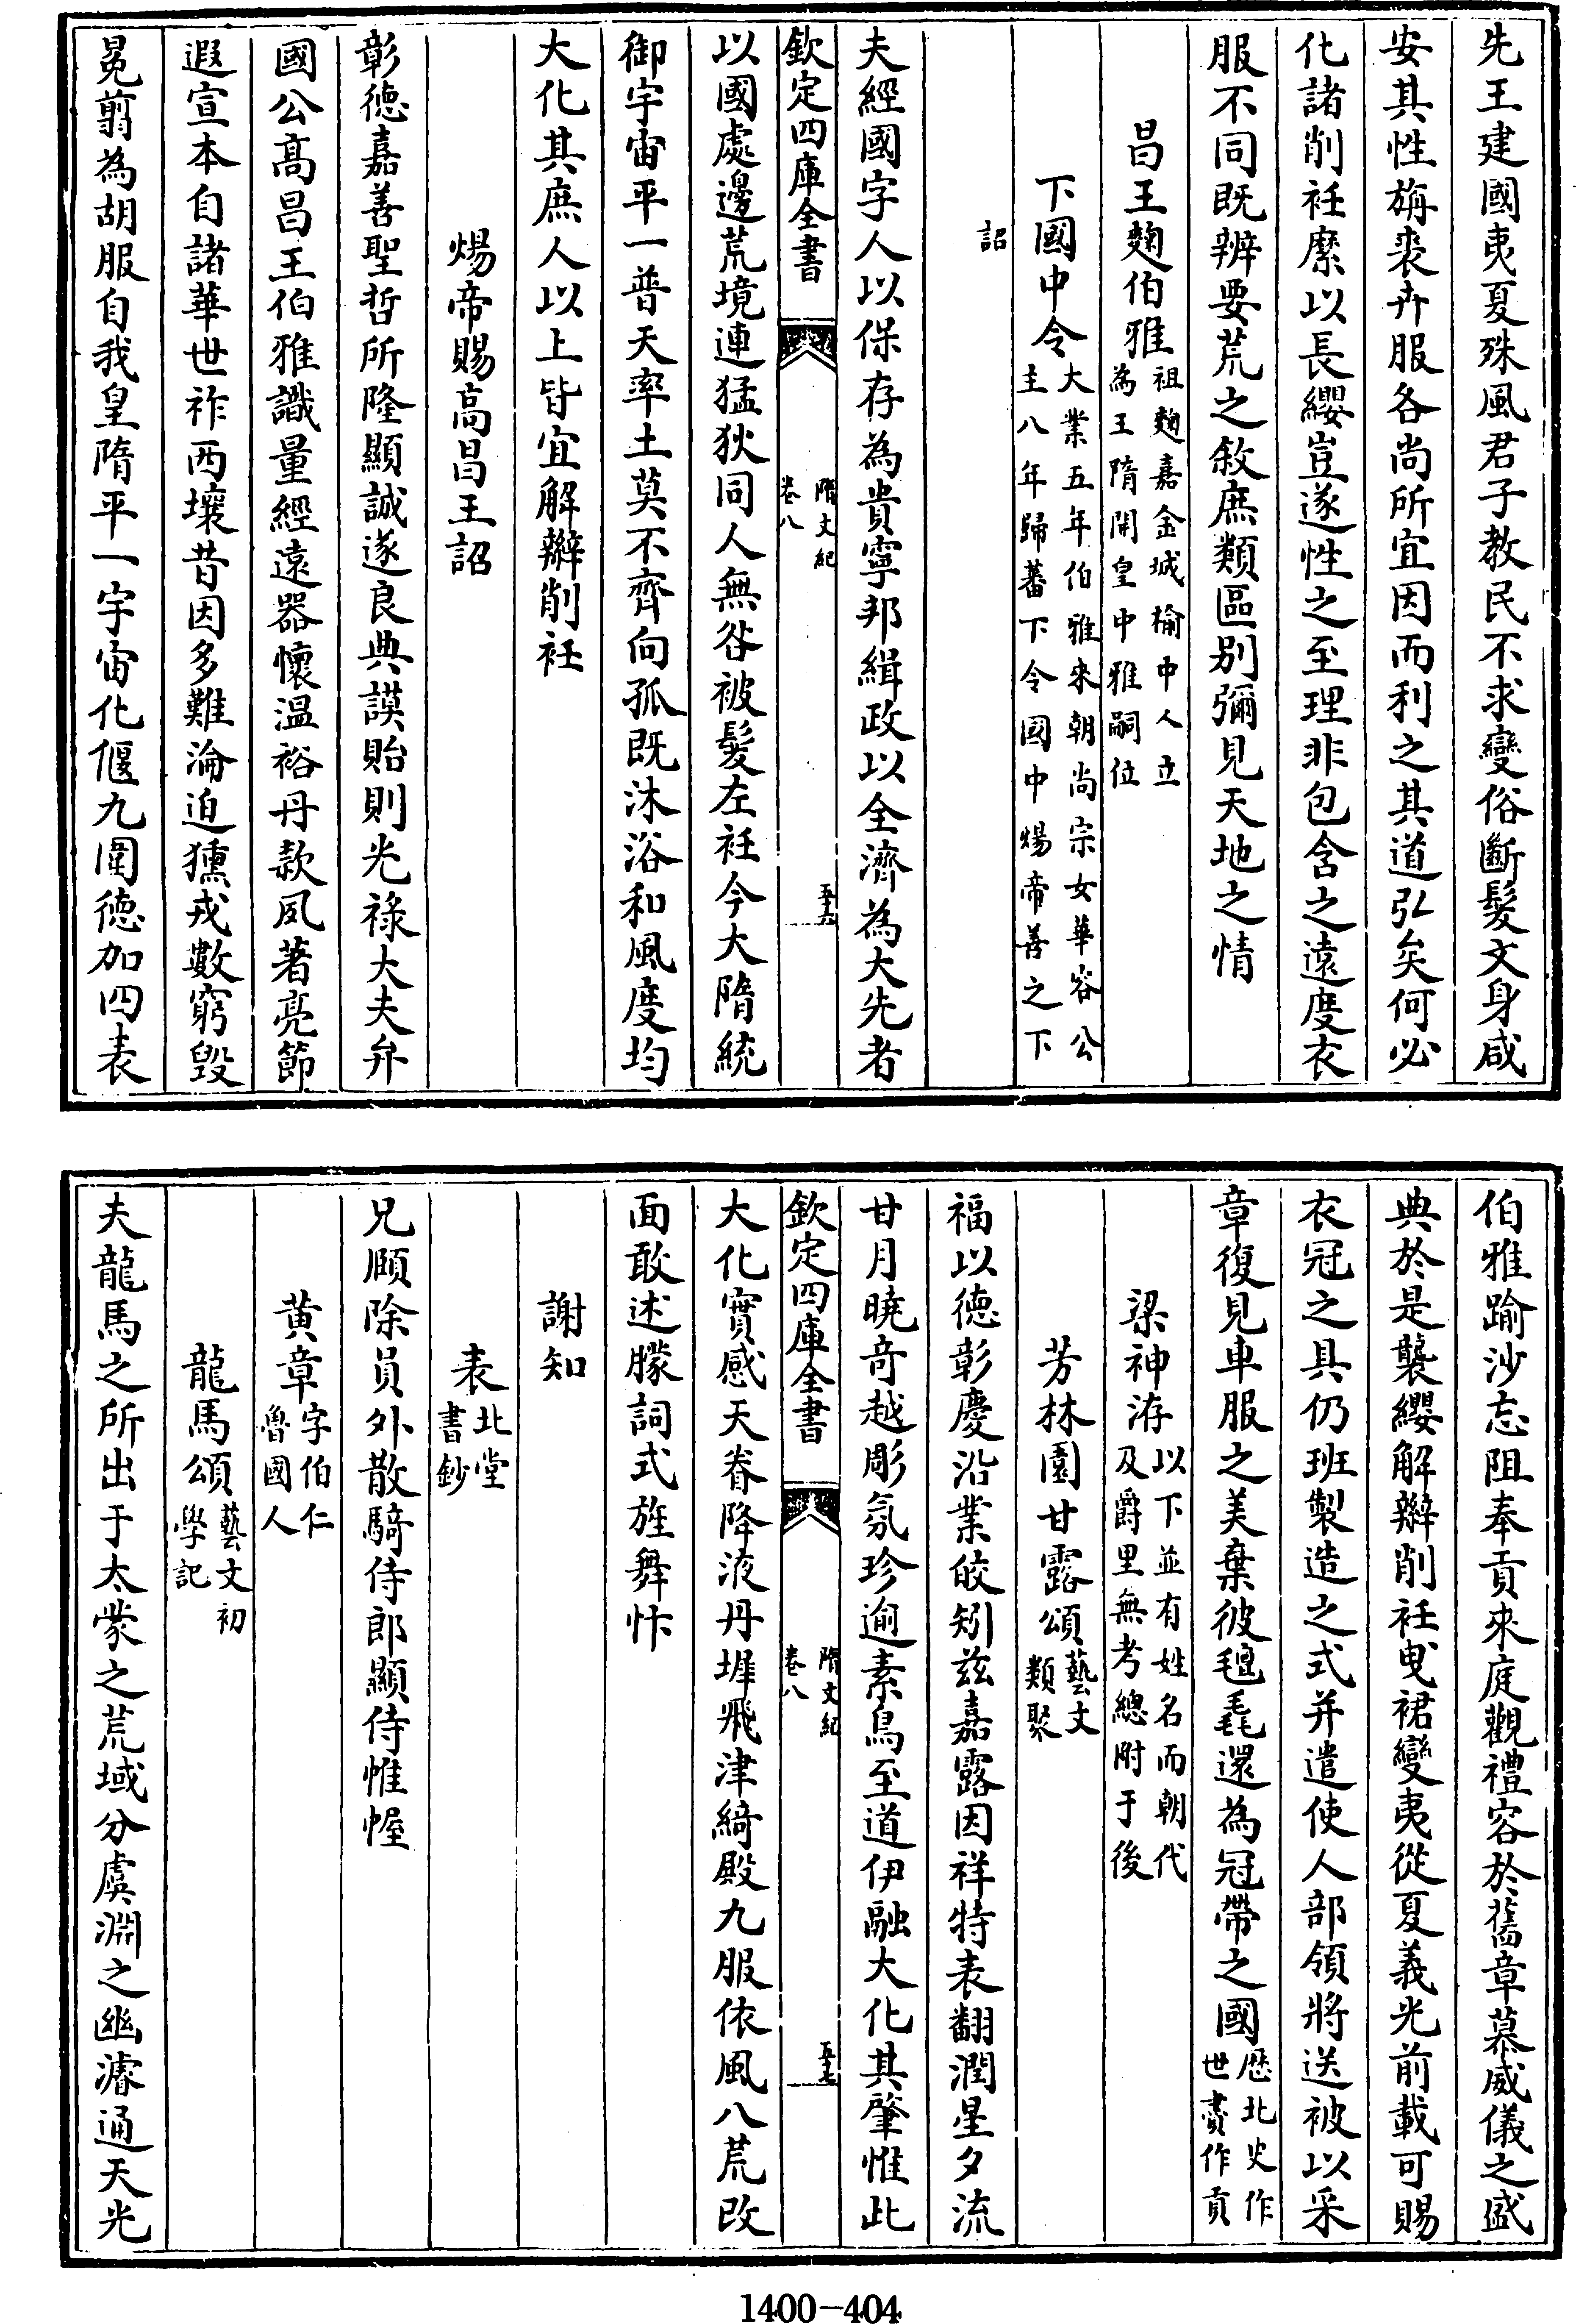 先王建國夷夏殊風君子教民不求變俗斷髮文身咸
安其性旃裘卉服各尚所宜因而利之其道弘矣何必
化諸削衽縻以長纓豈遂性之至理非包含之遠度衣
服不同既辨要荒之敘庶類區别彌見天地之情
昌王麴伯雅祖麴嘉金城榆中人立
為王隋開皇中雅嗣位
下國中令大業五年伯雅來朝尚宗女華容公
主八年歸蕃下令國中煬帝善之下
詔
夫經國字人以保存為貴寧邦緝政以全濟為大先者
欽定四庫全書
隋文紀
卷八
五十六
以國處邊荒境連猛狄同人無咎被髮左衽今大隋統
御宇宙平一普天率土莫不齊向孤既沐浴和風庶均
大化其庶人以上皆宜解辮削衽
煬帝賜高昌王詔
彰徳嘉善聖哲所隆顯誠遂良典謨貽則光祿大夫弁
國公髙昌王伯雅識量經遠器懷温裕丹款夙著亮節
遐宣本自諸華世祚西壤昔因多難淪迫獯戎數窮毁
冕翦為胡服自我皇隋平一宇宙化偃九圍徳加四表
伯雅踰沙忘阻奉貢來庭觀禮容於舊章慕威儀之盛
典於是襲纓解辮削衽曵裾變夷從夏義光前載可賜
衣冠之具仍班製造之式并遣使人部領將送被以采
章復見車服之美棄彼氊毳還為冠帶之國歴北史作
世賣作貢
梁神洊以下並有姓名而朝代
及爵里無考總附于後
芳林園甘露頌藝文
類聚
福以徳彰慶沿業皎矧兹嘉露因祥特表翻潤星夕流
甘月曉竒越彫氛珍逾素鳥至道伊融大化其肇惟此
欽定四庫全書
隋文紀
卷八
五十七
大化實感天眷降液丹墀飛津綺殿九服依風八荒改
面敢述朦詞式旌舞忭
謝知
表北堂
書鈔
兄願除員外散騎侍郎顯侍帷幄
黄章字伯仁
魯國人
龍馬頌藝文初
學記
夫龍馬之所出于太蒙之荒域分虞淵之幽濬通天光
1400-404